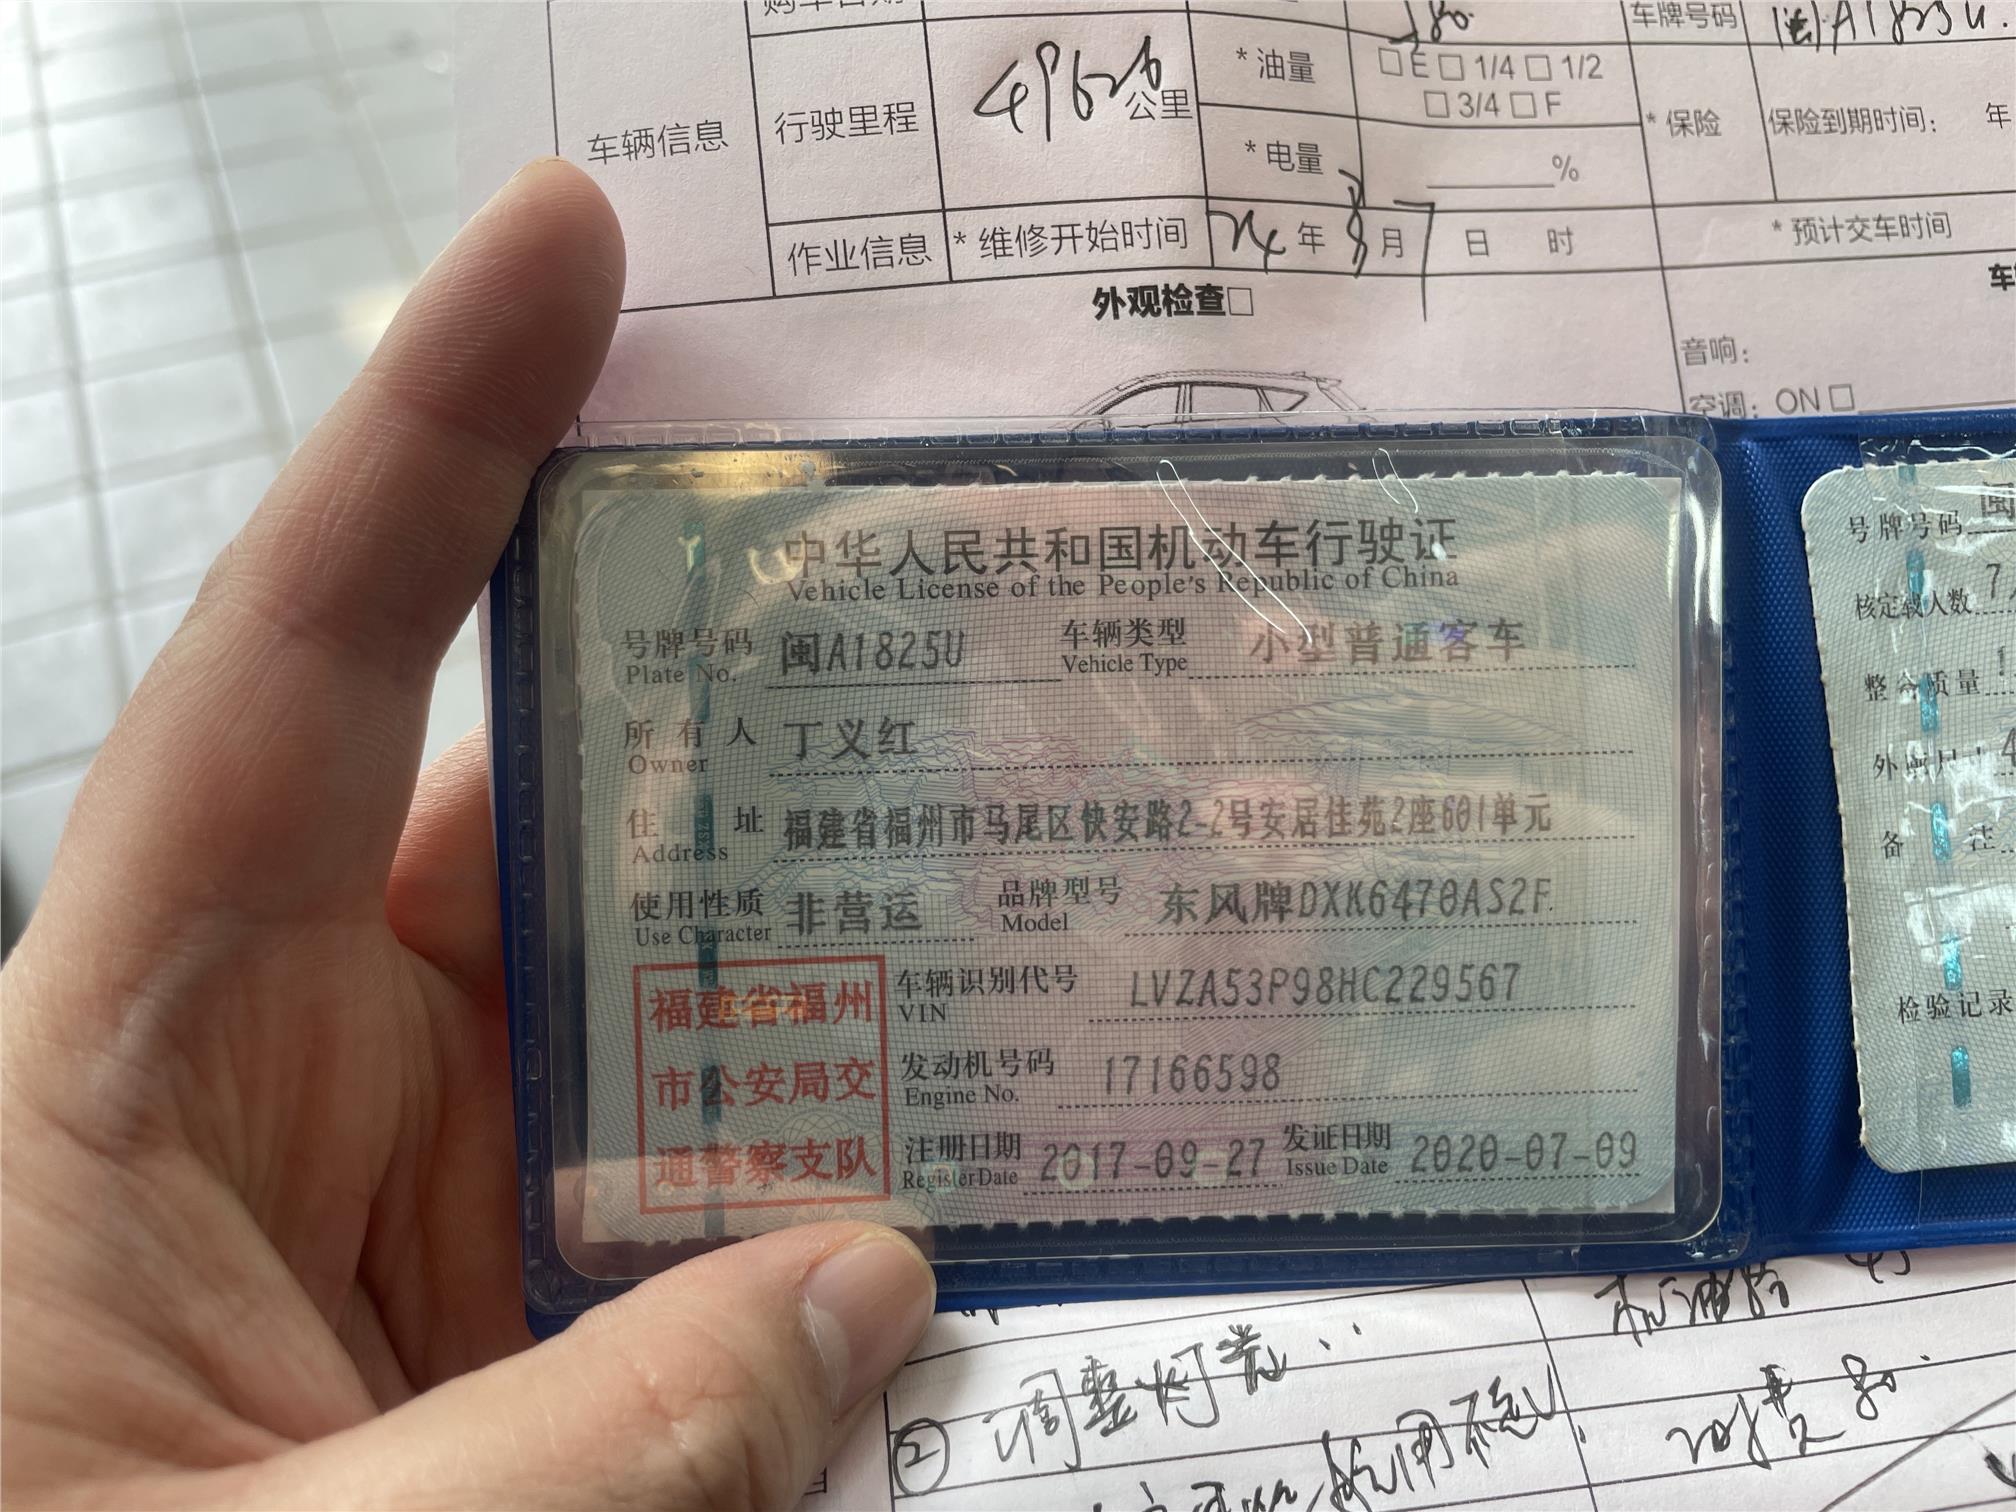 车牌号码 闽A1825U
车辆信息 行驶里程 49626 公里 * 油量 □ E □ 1/4 □ 1/2
□ 3/4 □ F
* 电量 %
* 保险 保险到期时间: 年
作业信息 * 维修开始时间 24 年 8 月 7 日 时 * 预计交车时间
外观检查□
音响:
空调: ON □
中华人民共和国机动车行驶证
Vehicle License of the People's Republic of China
号牌号码 闽A1825U 车辆类型 小型普通客车
Plate No. Vehicle Type
所有人 丁义红
Owner
住址 福建省福州市马尾区快安路2-2号安居住苑2座601单元
Address
使用性质 非营运 品牌型号 东风牌DXK6470AS2F
Use Character Model
福建省福州
市公安局交
通警察支队
车辆识别代号 LVZA53P98HC229567
VIN
发动机号码 17166598
Engine No.
注册日期 2017-09-27 发证日期 2020-07-09
Register Date Issue Date
号牌号码 闽
核定载人数 7
整备质量 1
外廓尺寸 4
备注
检验记录
② 调整灯光